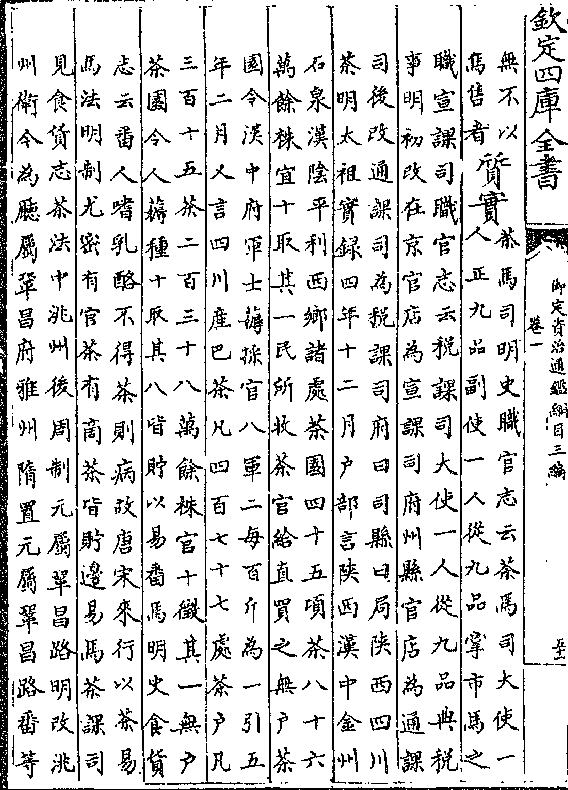 欽定四庫全書
御定資治通鑑綱目三編
卷一
無不以
馬售者
質實
茶馬司明史職官志云茶馬司大使一
人正九品副使一人從九品掌市馬之
職宣課司職官志云稅課司大使一人從九品典稅
事明初改在京官店為宣課司府州縣官店為通課
司後改通課司為稅課司府曰司縣曰局陝西四川
茶明太祖實録四年十二月户部言陝西漢中金州
石泉漢陰平利西鄉諸處茶園四十五頃茶八十六
萬餘株宜十取其一民所收茶官給直買之無户茶
園令漢中府軍士薅採官八軍二每百斤為一引五
年二月又言四川産巴茶凡四百七十七處茶户凡
三百十五茶二百三十八萬餘株官十徵其一無户
茶園令人薅種十取其八皆貯以易番馬明史食貨
志云番人嗜乳酪不得茶則病故唐宋來行以茶易
馬法明制尤密有官茶有商茶皆貯邊易馬茶課司
見食貨志茶法中洮州後周制元屬鞏昌路明改洮
州衛今為廳屬鞏昌府雅州隋置元屬鞏昌路番等